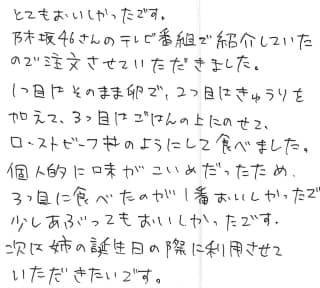 とてもおいしかったです。
乃木坂46さんのテレビ番組で紹介していた
ので注文させていただきました。
1つ目はそのまま卵で、2つ目はきゅうりを
加えて、3つ目はごはんの上にのせて、
ローストビーフ丼のようにして食べました。
個人的に味がこいめだったため、
3つ目に食べたのが1番おいしかったで
少しあぶってもおいしかったです。
次は姉の誕生日の際に利用させて
いただきたいです。